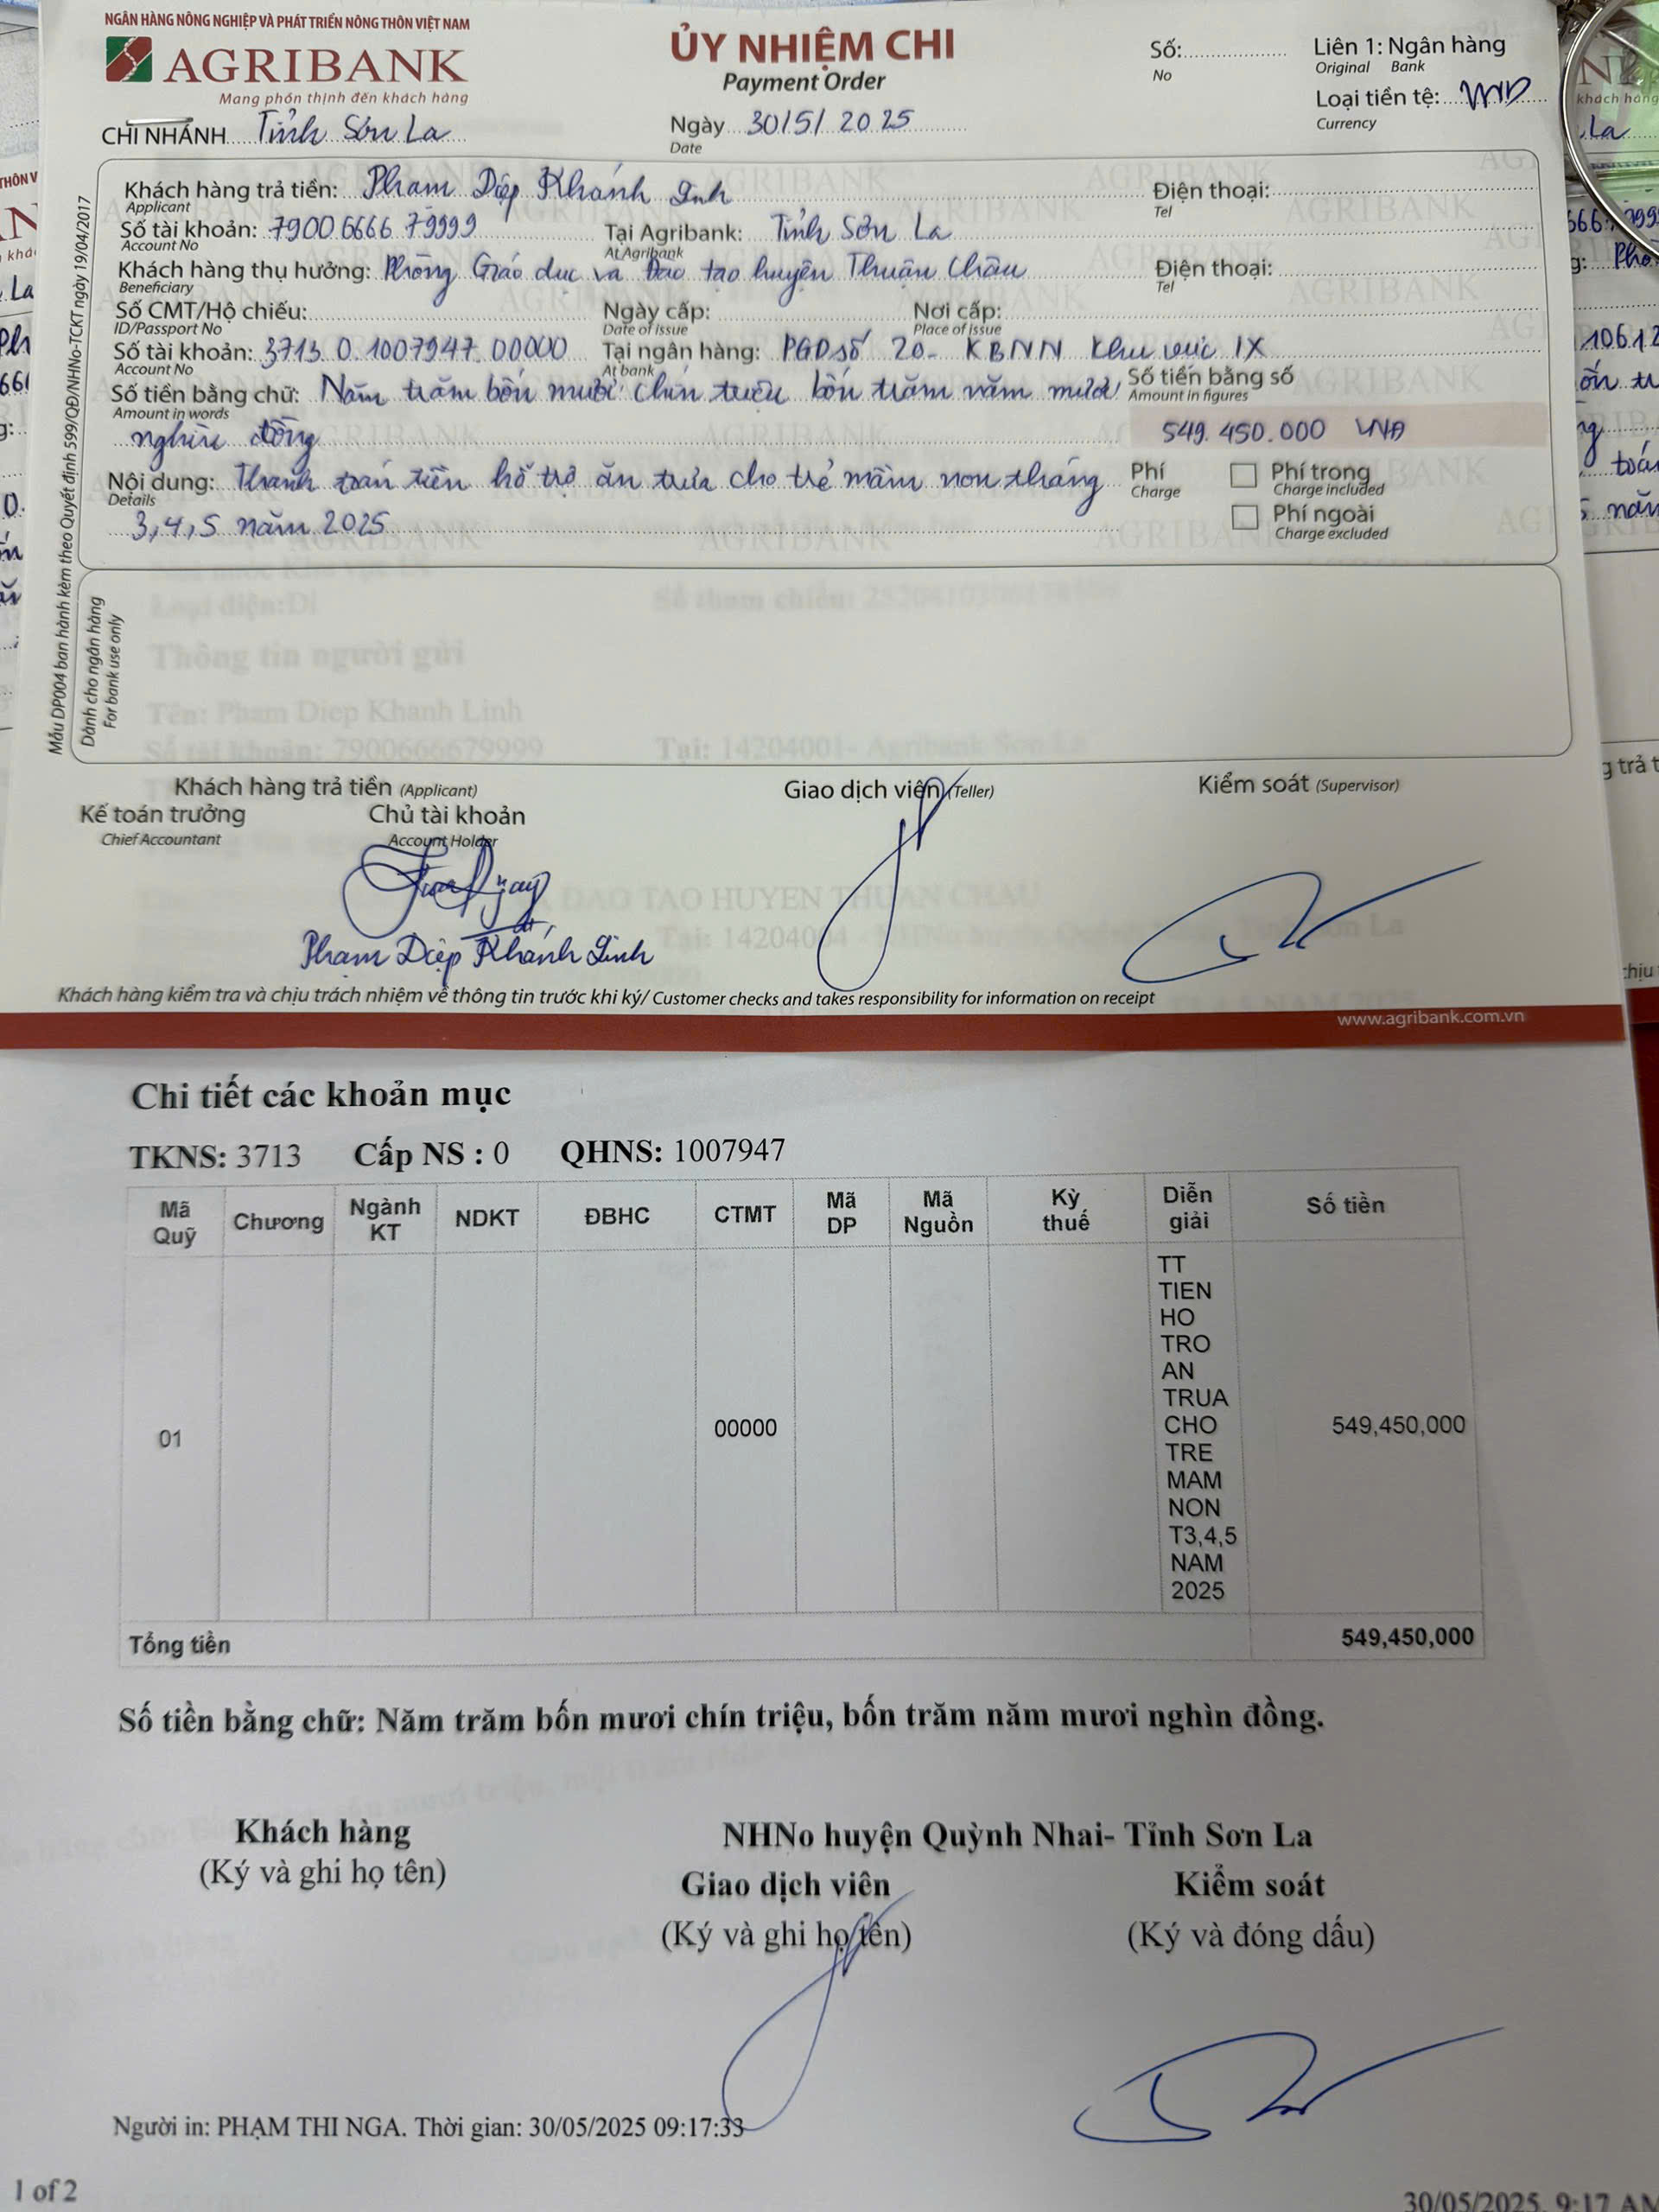 NGÂN HÀNG NÔNG NGHIỆP VÀ PHÁT TRIỂN NÔNG THÔN VIỆT NAM
AGRIBANK
Mang phồn thịnh đến khách hàng
CHI NHÁNH Tỉnh Sơn La
ỦY NHIỆM CHI
Payment Order
Ngày 30/5/2025
Date
Số:
No
Liên 1: Ngân hàng
Original Bank
Loại tiền tệ: VND
Currency
Khách hàng trả tiền: Phạm Diệp Khánh Linh Điện thoại:
Applicant Tel
Số tài khoản: 7900 6666 79999 Tại Agribank: Tỉnh Sơn La
Account No At Agribank
Khách hàng thụ hưởng: Phòng Giáo dục và Đào tạo huyện Thuận Châu Điện thoại:
Beneficiary Tel
Số CMT/Hộ chiếu: Ngày cấp: Nơi cấp:
ID/Passport No Date of issue Place of issue
Số tài khoản: 3713.0.1007947.00000 Tại ngân hàng: PGD số 20 - KBNN Khu vực IX
Account No At bank
Số tiền bằng chữ: Năm trăm bốn mươi chín triệu bốn trăm năm mươi Số tiền bằng số
Amount in words Amount in figures
nghìn đồng 549.450.000 VNĐ
Nội dung: Thanh toán tiền hỗ trợ ăn trưa cho trẻ mầm non tháng Phí Phí trong
Details Charge Charge included
3,4,5 năm 2025 Phí ngoài
Charge excluded
Mẫu DP004 ban hành kèm theo Quyết định 599/QĐ/NHNo-TCKT ngày 19/04/2017
Dành cho ngân hàng
For bank use only
Loại điện:Di
Thông tin người gửi
Tên: Pham Diep Khanh Linh
Số tài khoản: 7900666679999 Tại: 14204001- Agribank Son La
Khách hàng trả tiền (Applicant) Giao dịch viên (Teller) Kiểm soát (Supervisor)
Kế toán trưởng Chủ tài khoản
Chief Accountant Account Holder
DAO TAO HUYEN THUAN CHAU
Phạm Diệp Khánh Linh
Khách hàng kiểm tra và chịu trách nhiệm về thông tin trước khi ký/ Customer checks and takes responsibility for information on receipt
www.agribank.com.vn
Chi tiết các khoản mục
TKNS: 3713 Cấp NS : 0 QHNS: 1007947
Mã Quỹ Chương Ngành KT NDKT ĐBHC CTMT Mã DP Mã Nguồn Kỳ thuế Diễn giải Số tiền
TT
TIEN
HO
TRO
AN
TRUA
01 00000 CHO 549,450,000
TRE
MAM
NON
T3,4,5
NAM
2025
Tổng tiền 549,450,000
Số tiền bằng chữ: Năm trăm bốn mươi chín triệu, bốn trăm năm mươi nghìn đồng.
Khách hàng NHNo huyện Quỳnh Nhai- Tỉnh Sơn La
(Ký và ghi họ tên) Giao dịch viên Kiểm soát
(Ký và ghi họ tên) (Ký và đóng dấu)
Người in: PHẠM THI NGA. Thời gian: 30/05/2025 09:17:33
1 of 2 30/05/2025, 9:17 AM